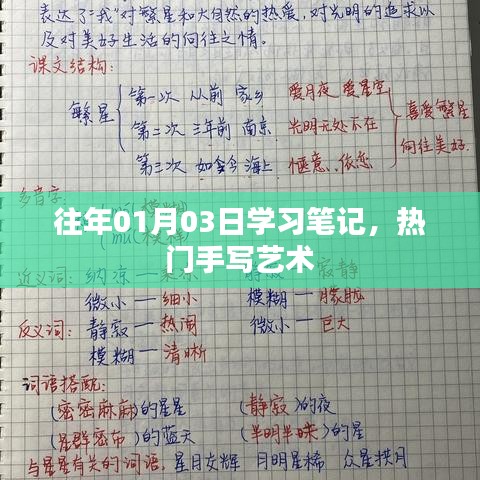 表达了“我”对繁星和大自然的热爱,对光明的追求以
及对美好生活的向往之情。
课文结构:
繁星
第一次 从前 家乡 爱月夜 爱星空
第二次 三年前 南京 光明无处不在
第三次 如今 海上 惬意、依恋
喜爱繁星
向往美好
多音字:
往年01月03日学习笔记,热
门手写艺术
近义词: 纳凉
寂静
微小—细小 模糊—朦胧
反义词: 静寂—热闹 微小—巨大
模糊—清晰
词语搭配:
(密密麻麻)的星星 (静寂)的夜
(星群密布)的蓝天 (半明半昧)的星
与星星有关的词语: 星月交辉 月明星稀 众星拱月